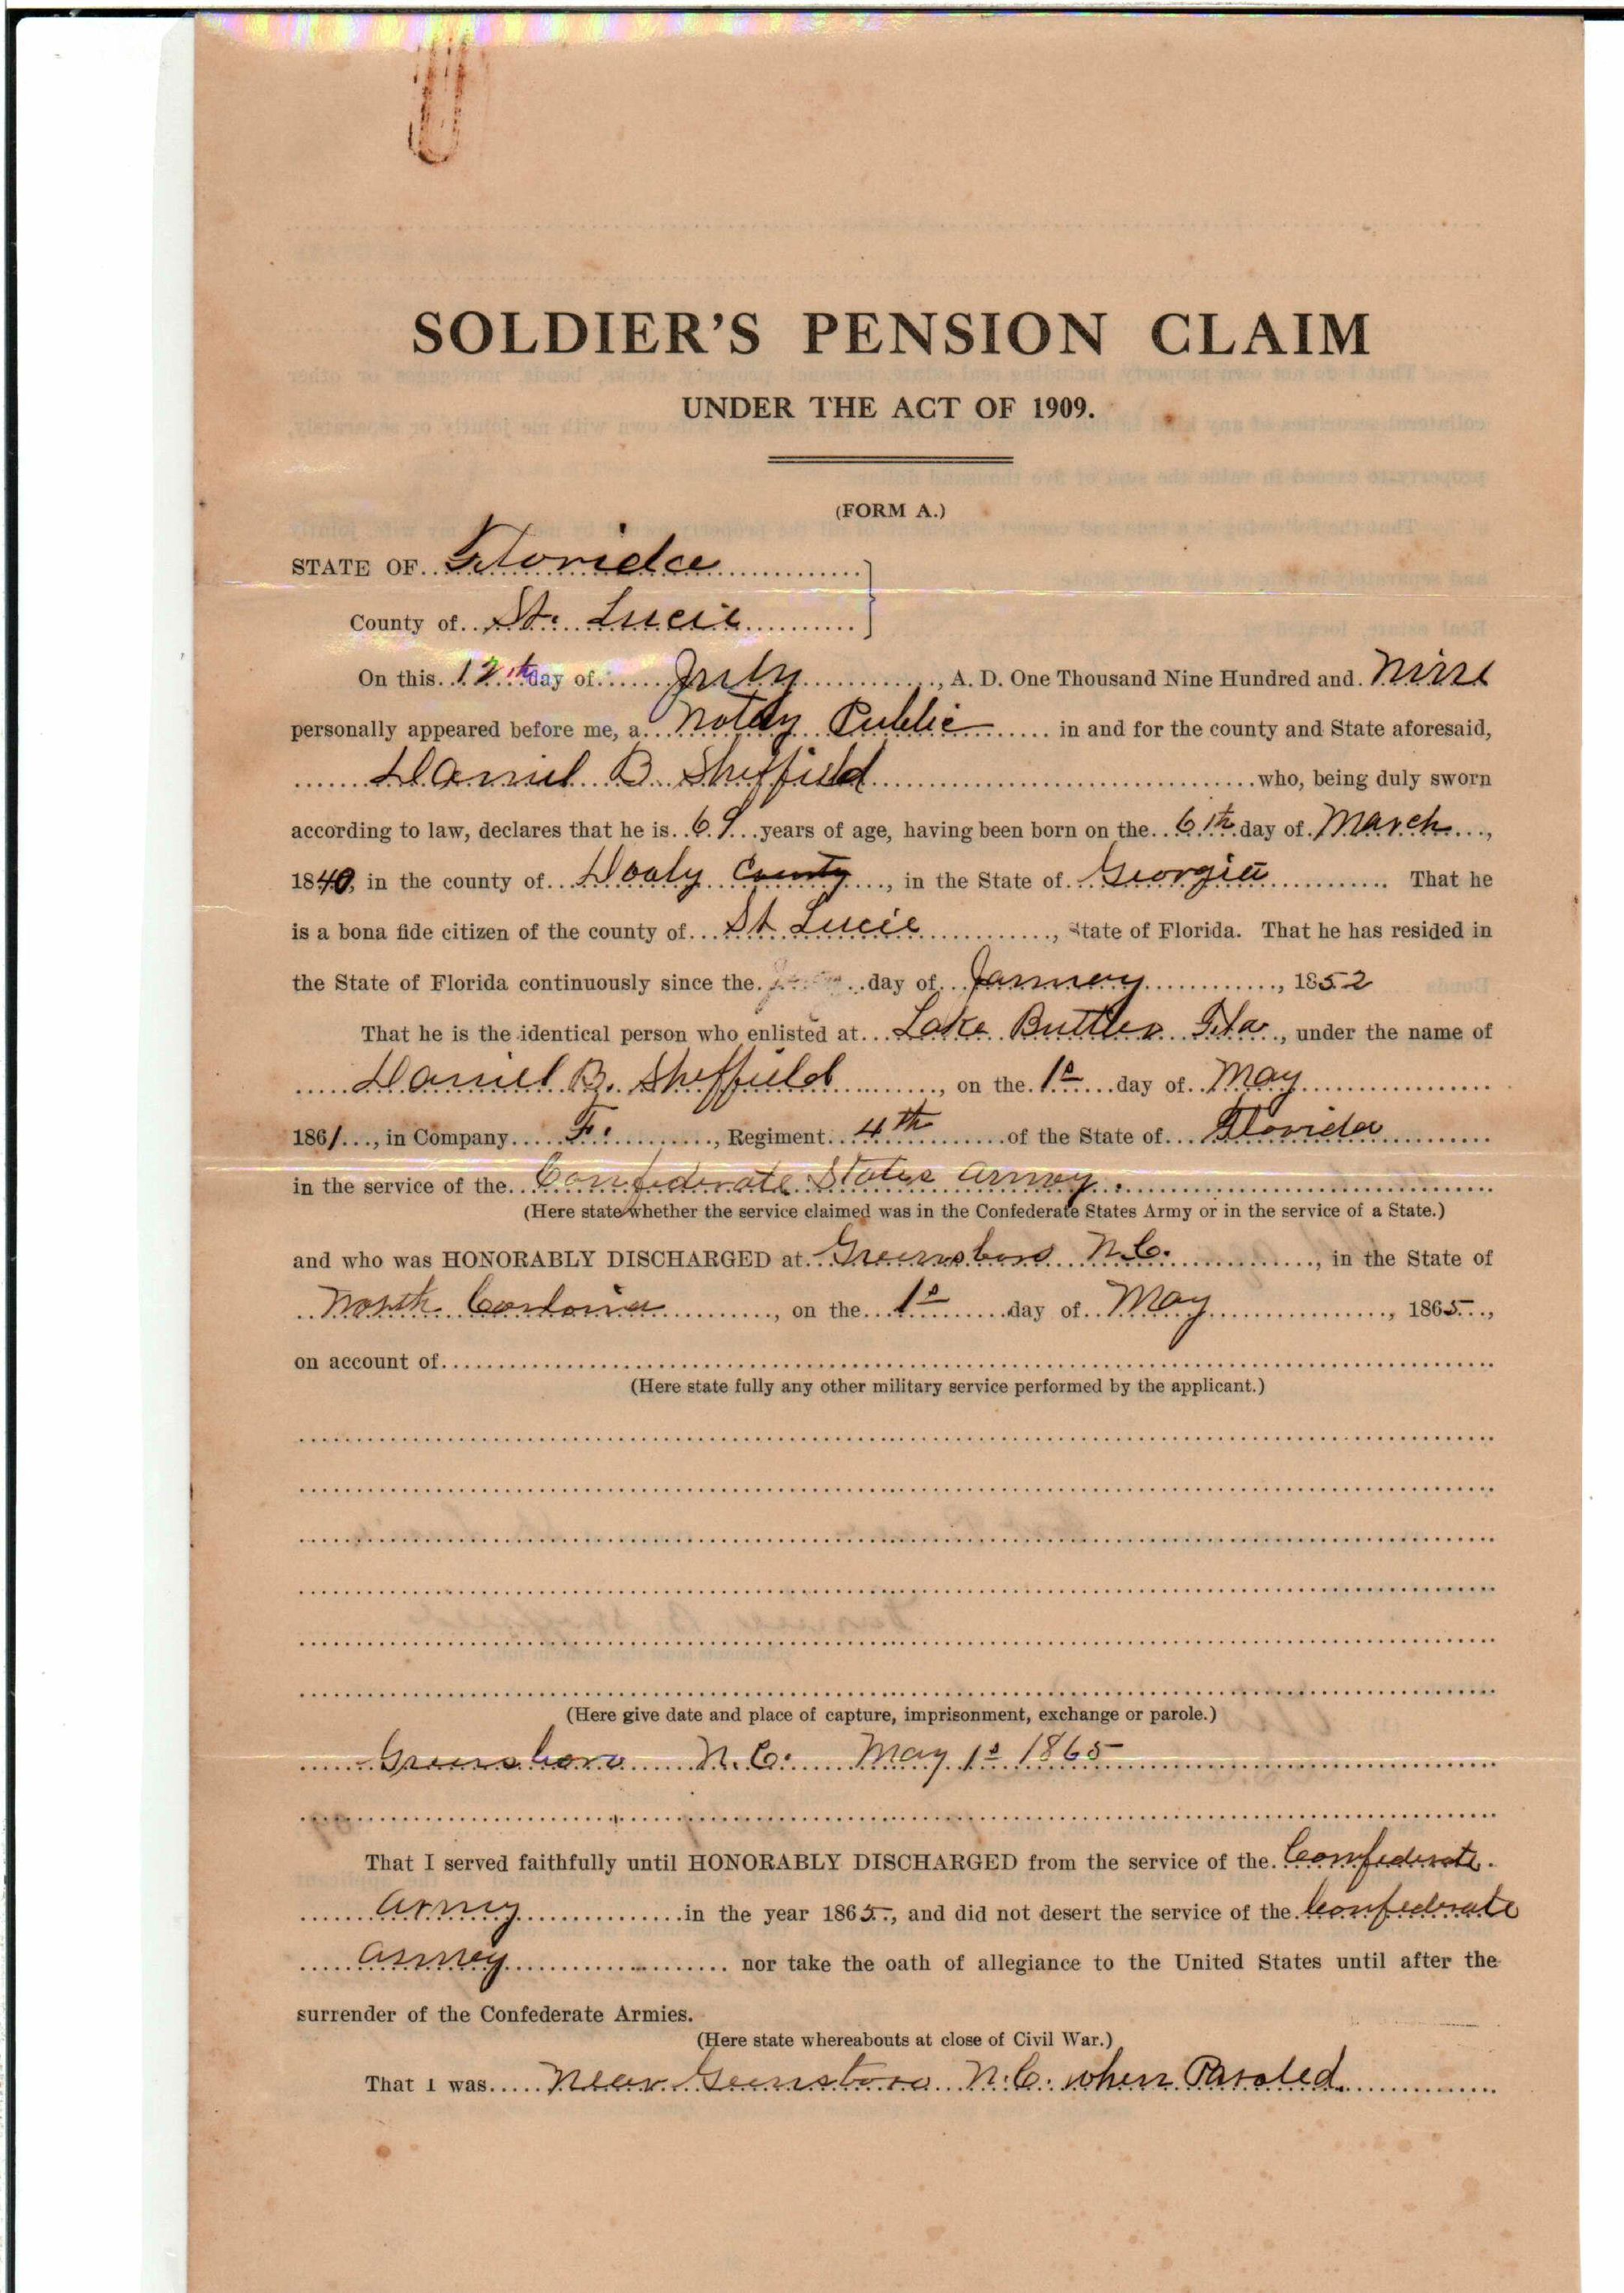 SOLDIER'S PENSION CLAIM
UNDER THE ACT OF 1909.
(FORM A.)
STATE OF Florida
County of St. Lucie
On this 12th day of July, A. D. One Thousand Nine Hundred and Nine
personally appeared before me, a Notay Public in and for the county and State aforesaid,
Daniel B. Sheffield who, being duly sworn
according to law, declares that he is 69 years of age, having been born on the 6th day of March,
1840, in the county of Dooly County, in the State of Georgia That he
is a bona fide citizen of the county of St Lucie, State of Florida. That he has resided in
the State of Florida continuously since the day of January, 1852
That he is the identical person who enlisted at Lake Buttler Fla, under the name of
Daniel B. Sheffield, on the 1s day of May
1861, in Company F., Regiment 4th of the State of Florida
in the service of the Confederate States Army.
(Here state whether the service claimed was in the Confederate States Army or in the service of a State.)
and who was HONORABLY DISCHARGED at Greensboro N.C., in the State of
North Carlonia, on the 1s day of May, 1865,
on account of
(Here state fully any other military service performed by the applicant.)
(Here give date and place of capture, imprisonment, exchange or parole.)
Greensboro N.C. May 1s 1865
That I served faithfully until HONORABLY DISCHARGED from the service of the Confederate
Army in the year 1865, and did not desert the service of the Confederate
Army nor take the oath of allegiance to the United States until after the
surrender of the Confederate Armies.
(Here state whereabouts at close of Civil War.)
That I was Near Geensboro N.C. when Paroled.